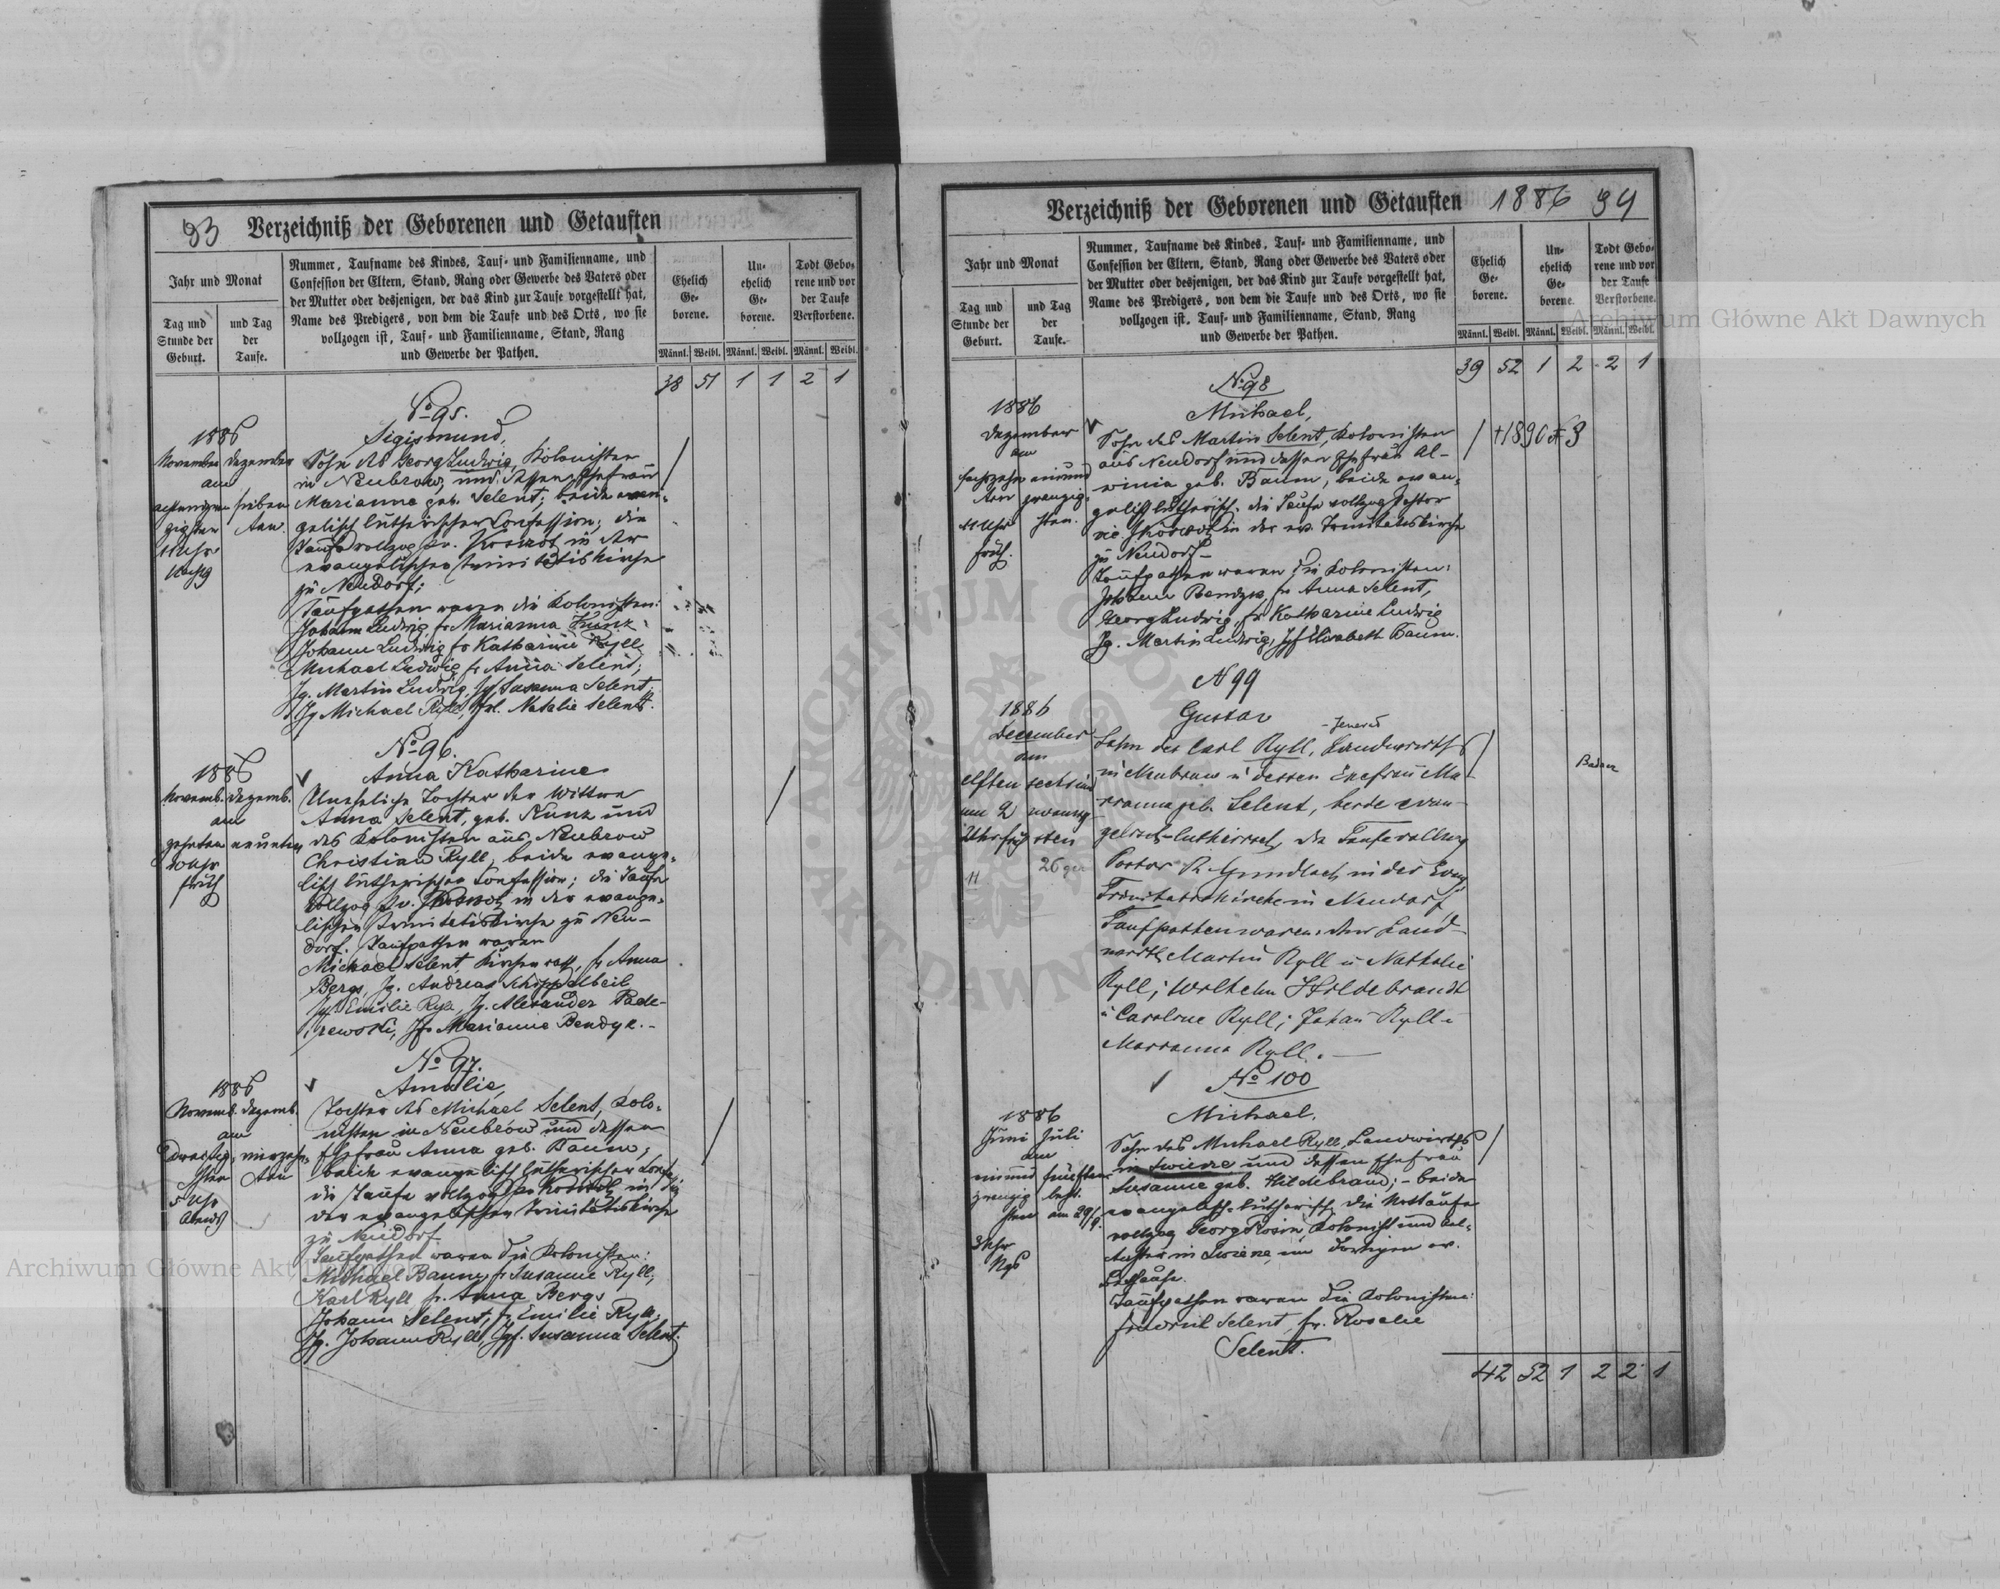 93 Verzeichniß der Geborenen und Getauften
Jahr und Monat
Tag und Stunde der Geburt.
und Tag der Taufe.
Nummer, Taufname des Kindes, Tauf- und Familienname, und
Confession der Eltern, Stand, Rang oder Gewerbe des Vaters oder
der Mutter oder desjenigen, der das Kind zur Taufe vorgestellt hat,
Name des Predigers, von dem die Taufe und des Orts, wo sie
vollzogen ist, Tauf- und Familienname, Stand, Rang
und Gewerbe der Pathen.
Ehelich Ge- borene.
Un- ehelich Ge- borene.
Todt Gebo- rene und vor der Taufe Verstorbene.
Männl. Weibl. Männl. Weibl. Männl. Weibl.
38 51 1 1 2 1
No 95.
Sigismund,
1886
November Dezember
am
sieben
ten
11 Uhr
Sohn des Georg Ludwig, Kolonisten
in Neubrow, und dessen Ehefrau
Marianna geb. Selent; beide evan-
gelisch lutherischer Confession; die
Taufe vollzog in der
evangelischen Trinitatiskirche
zu Neudorf;
Taufpathen waren die Kolonisten:
Johann Ludwig fr Marianna Kunz
Johann Ludwig fr Katharine Ryll
Michael Ludwig fr Anna Selent;
Jg. Martin Ludwig, Jgf. Susanna Selent,
Jg Michael Ryll, Jgf. Natalie Selent.
No 96.
Anna Katharine
1886
Novemb. Dezemb.
am
zehnten neunten
10 Uhr
früh
Uneheliche Tochter der Wittwe
Anna Selent, geb. Kunz und
des Kolonisten aus Neubrow
Christian Ryll, beide evange-
lisch lutherischer Confession; die Taufe
vollzog in der evange-
lischen Trinitatiskirche zu Neu-
dorf. Taufpathen waren
Michael Selent, fr Anna
Bergs, Jg. Andreas Schöppelbeil
Jgf Emilie Ryll, Jg. Alexander Pade-
rewski, Jgf. Marianne Bendyk.-
No 97.
Amalie,
1886
Novemb. Dezemb.
am
dreißig- vierzehn-
sten ten
5 Uhr
Abends
Tochter des Michael Selent, Kolo-
nisten in Neubrow und dessen
Ehefrau Anna geb. Baum,
beide evangelisch lutherischer Conf.
die Taufe vollzog in
der evangelischen Trinitatiskirche
zu Neudorf
Taufpathen waren die Kolonisten:
Michael Baum, fr Susanne Ryll,
Karl Ryll fr. Anna Bergs
Johann Selent, fr Emilie Ryll,
Jg. Johann Ryll, Jgf. Susanna Selent.
Verzeichniß der Geborenen und Getauften 1886 94
Jahr und Monat
Tag und Stunde der Geburt.
und Tag der Taufe.
Nummer, Taufname des Kindes, Tauf- und Familienname, und
Confession der Eltern, Stand, Rang oder Gewerbe des Vaters oder
der Mutter oder desjenigen, der das Kind zur Taufe vorgestellt hat,
Name des Predigers, von dem die Taufe und des Orts, wo sie
vollzogen ist, Tauf- und Familienname, Stand, Rang
und Gewerbe der Pathen.
Ehelich Ge- borene.
Un- ehelich Ge- borene.
Todt Gebo- rene und vor der Taufe Verstorbene.
Männl. Weibl. Männl. Weibl. Männl. Weibl.
39 52 1 2 2 1
No 98
Michael,
1886
Dezember
am
sechszehn- neunund
ten zwanzig-
11 Uhr sten.
früh.
Sohn des Martin Selent, Kolonisten
aus Neudorf und dessen Ehefrau Al-
winia geb. Baum, beide evan-
gelisch lutherisch. die Taufe vollzog Pastor
vic. in der ev. Trinitatiskirche
zu Neudorf-
Taufpathen waren die Kolonisten:
Johann Bendyk, fr Anna Selent,
Georg Ludwig, fr Katharine Ludwig
Jg. Martin Ludwig, Jgf Elisabeth Baum.
N 99
Gustav
1886
December
am
elften sechsund
um 2 zwanzig
Uhr früh sten
11 26
Sohn des Carl Ryll, Landwirths
in Neubrow u dessen Ehefrau Ma-
rianna geb. Selent, beide evan-
gelisch-lutherisch, die Taufe vollzog
Pastor R. Gundlach in der Evang
Trinitatiskirche in Neudorf
Taufpathen waren: der Land-
wirth Martin Ryll u Nathalie
Ryll; Wilhelm Hildebrandt
u Caroline Ryll; Johan Ryll u
Marianna Ryll.
No 100
Michael.
1886
Juni Juli
am
neunund fünften
zwanzig
sten am 29/9.
3 Uhr
Sohn des Michael Ryll Landwirths
in Swierze und dessen Ehefrau
Susanne geb. Hildebrand; - beide
evangelisch-lutherisch, die Nottaufe
vollzog Georg Rosin, Kolonist und
in Swierze, im dortigen ev.
Taufpathen waren die Kolonisten:
Friedrich Selent, fr. Rosalie
Selent.
42 52 1 2 2 1
Archiwum Główne Akt Dawnych
Archiwum Główne Akt Dawnych